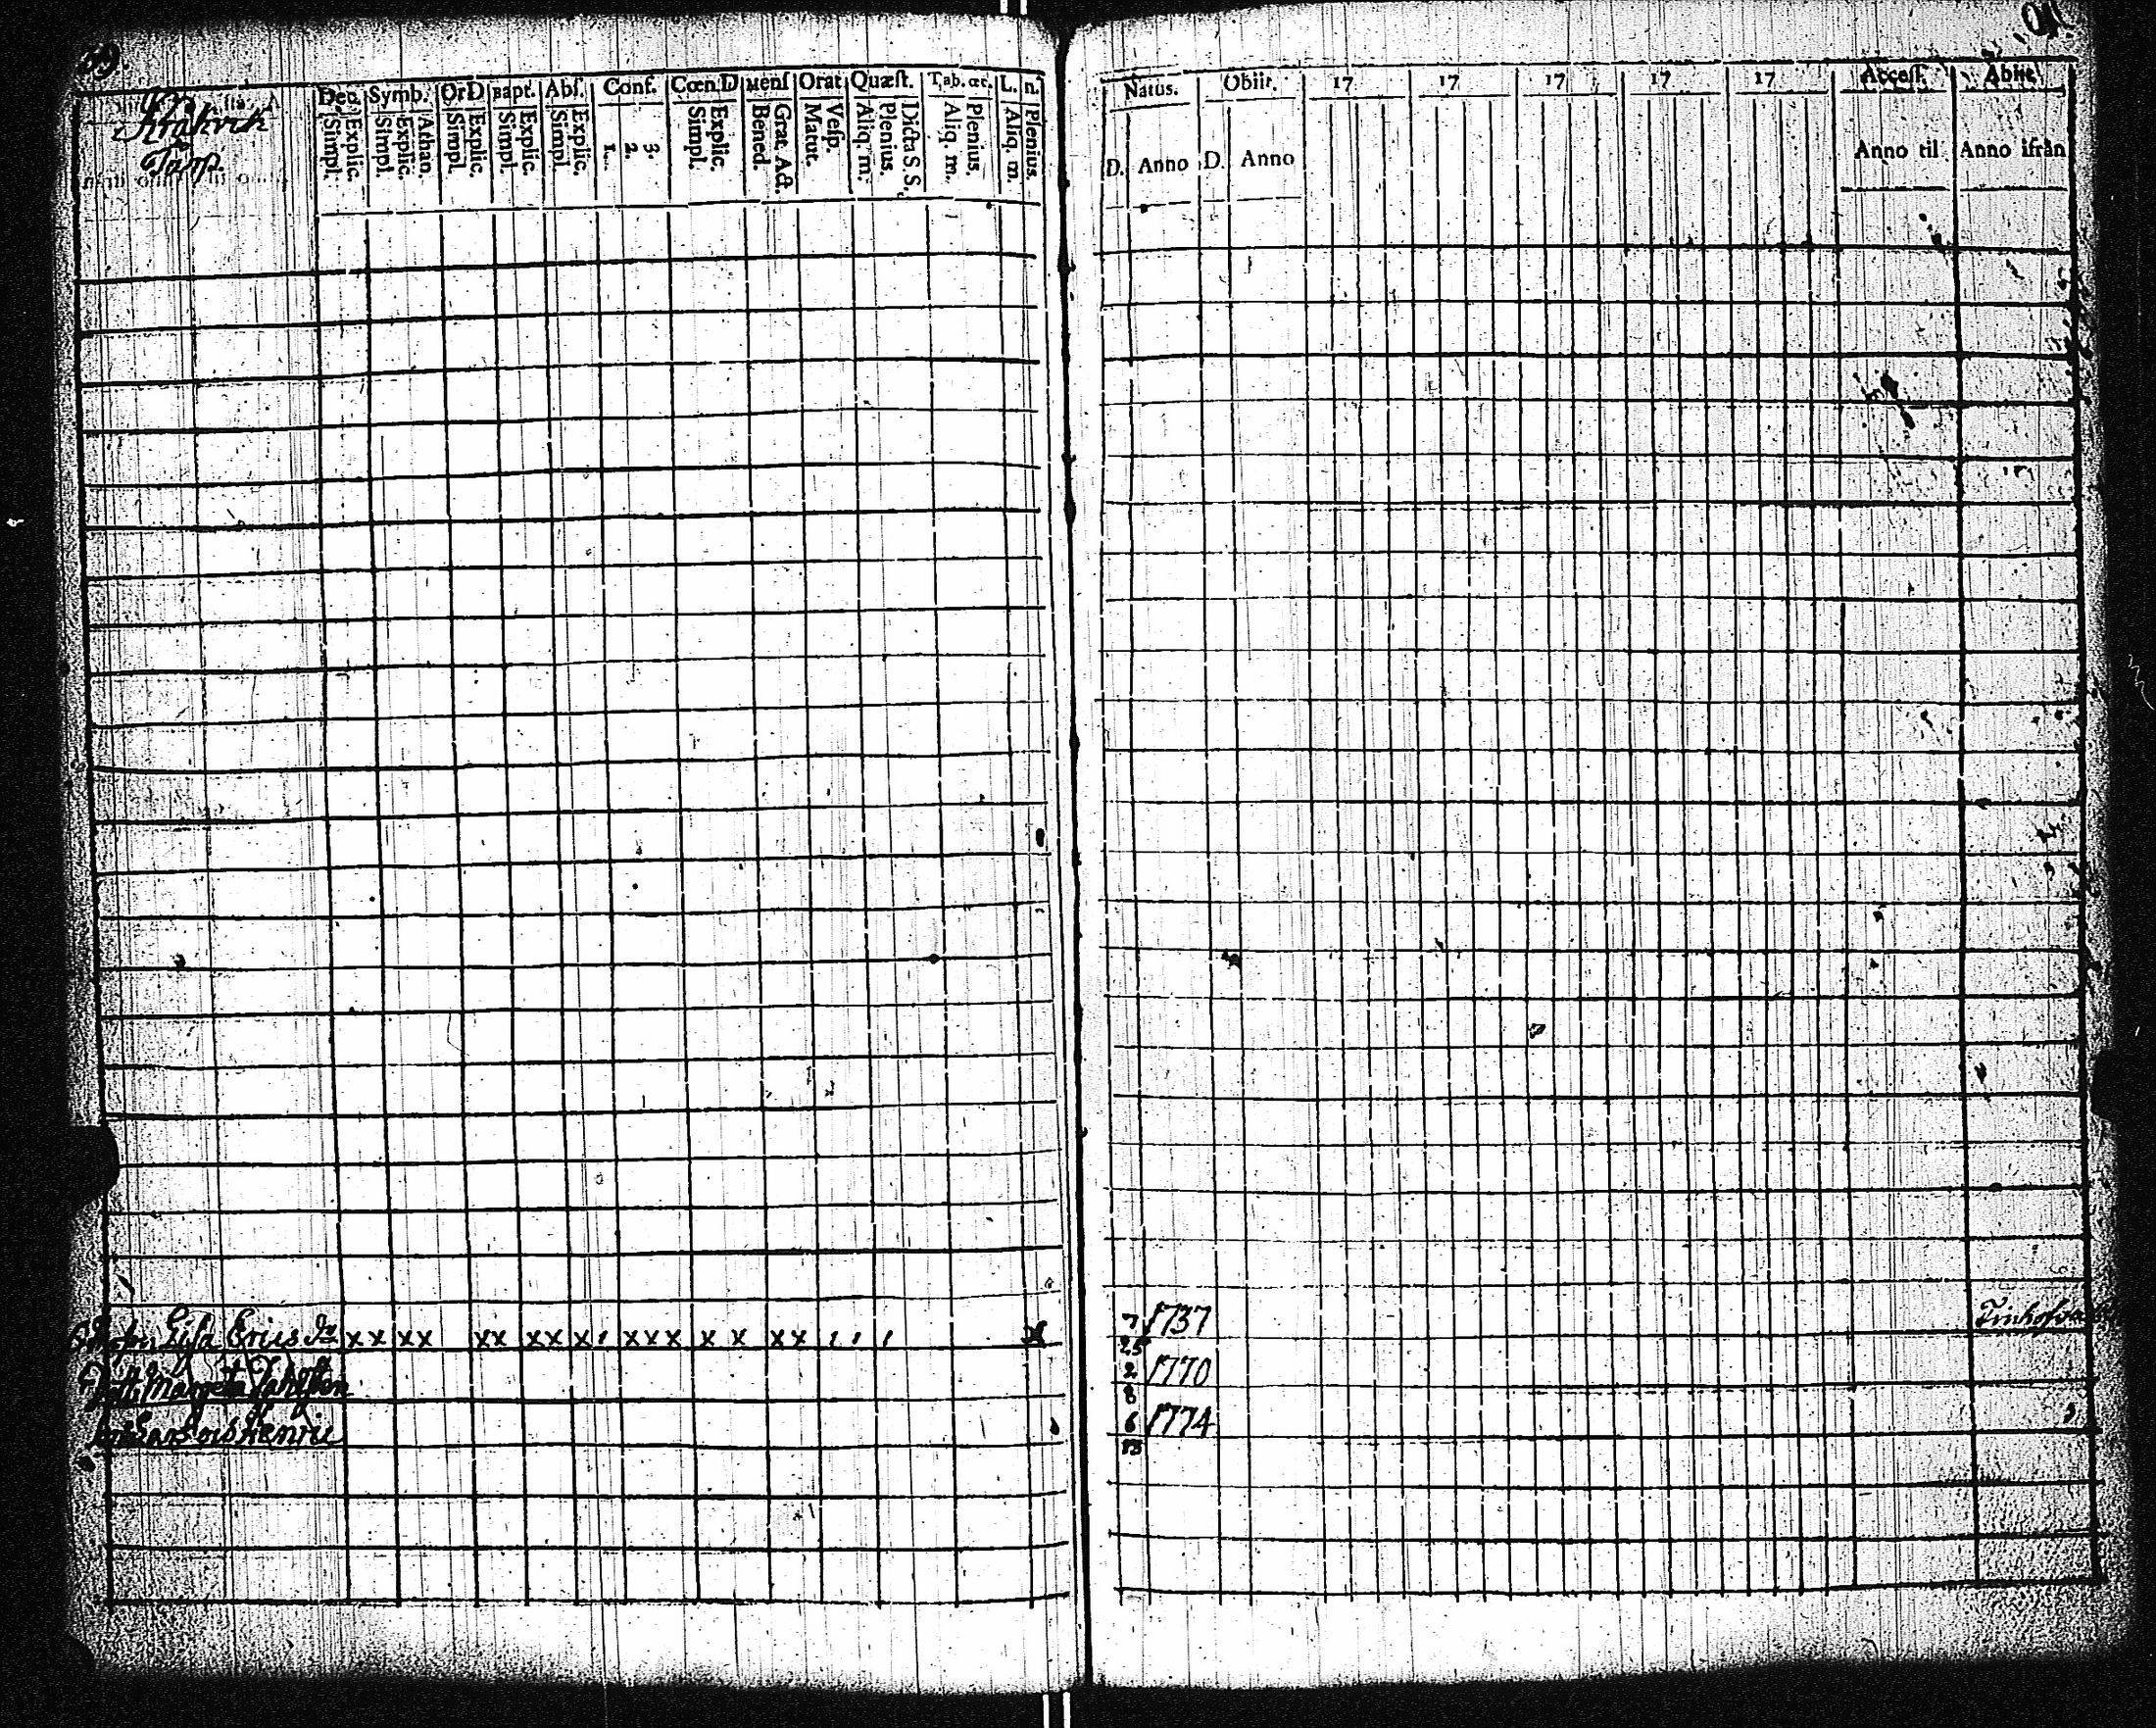 Kråkvik
Torp.
Dec. Symb. Or D Bapt. Abſ. Conf. Cœn. D Menſ Orat. Quæſt. Tab. œc. L. n.
Simpl. Explic. Simpl. Explic. Athan. Simpl. Explic. Simpl. Explic. Simpl. Explic. 1. 2. 3. Simpl. Explic. Bened. Grat. Act. Matut. Veſp. Aliq. m. Plenius. Dicta S. S. Aliq. m. Plenius. Aliq. m. Plenius.
Natus. Obiit. 17 17 17 17 17 Acceſſ. Abiit.
D. Anno D. Anno Anno til Anno ifrån
Lisa Erics dr x x x x x x x x x x x x x x x x 7 25 1737
Margeta 2 8 1770
6 13 1774